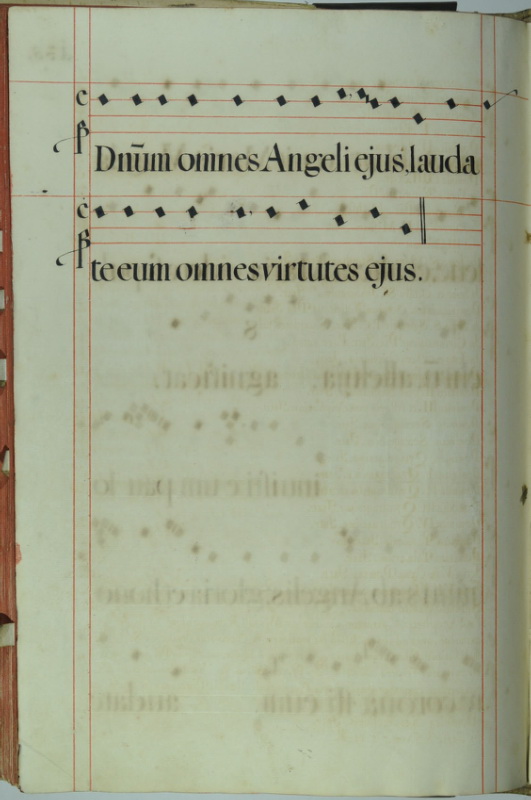 Dnu̅m omnes Angeli ejus, lauda
te eum omnes virtutes ejus.